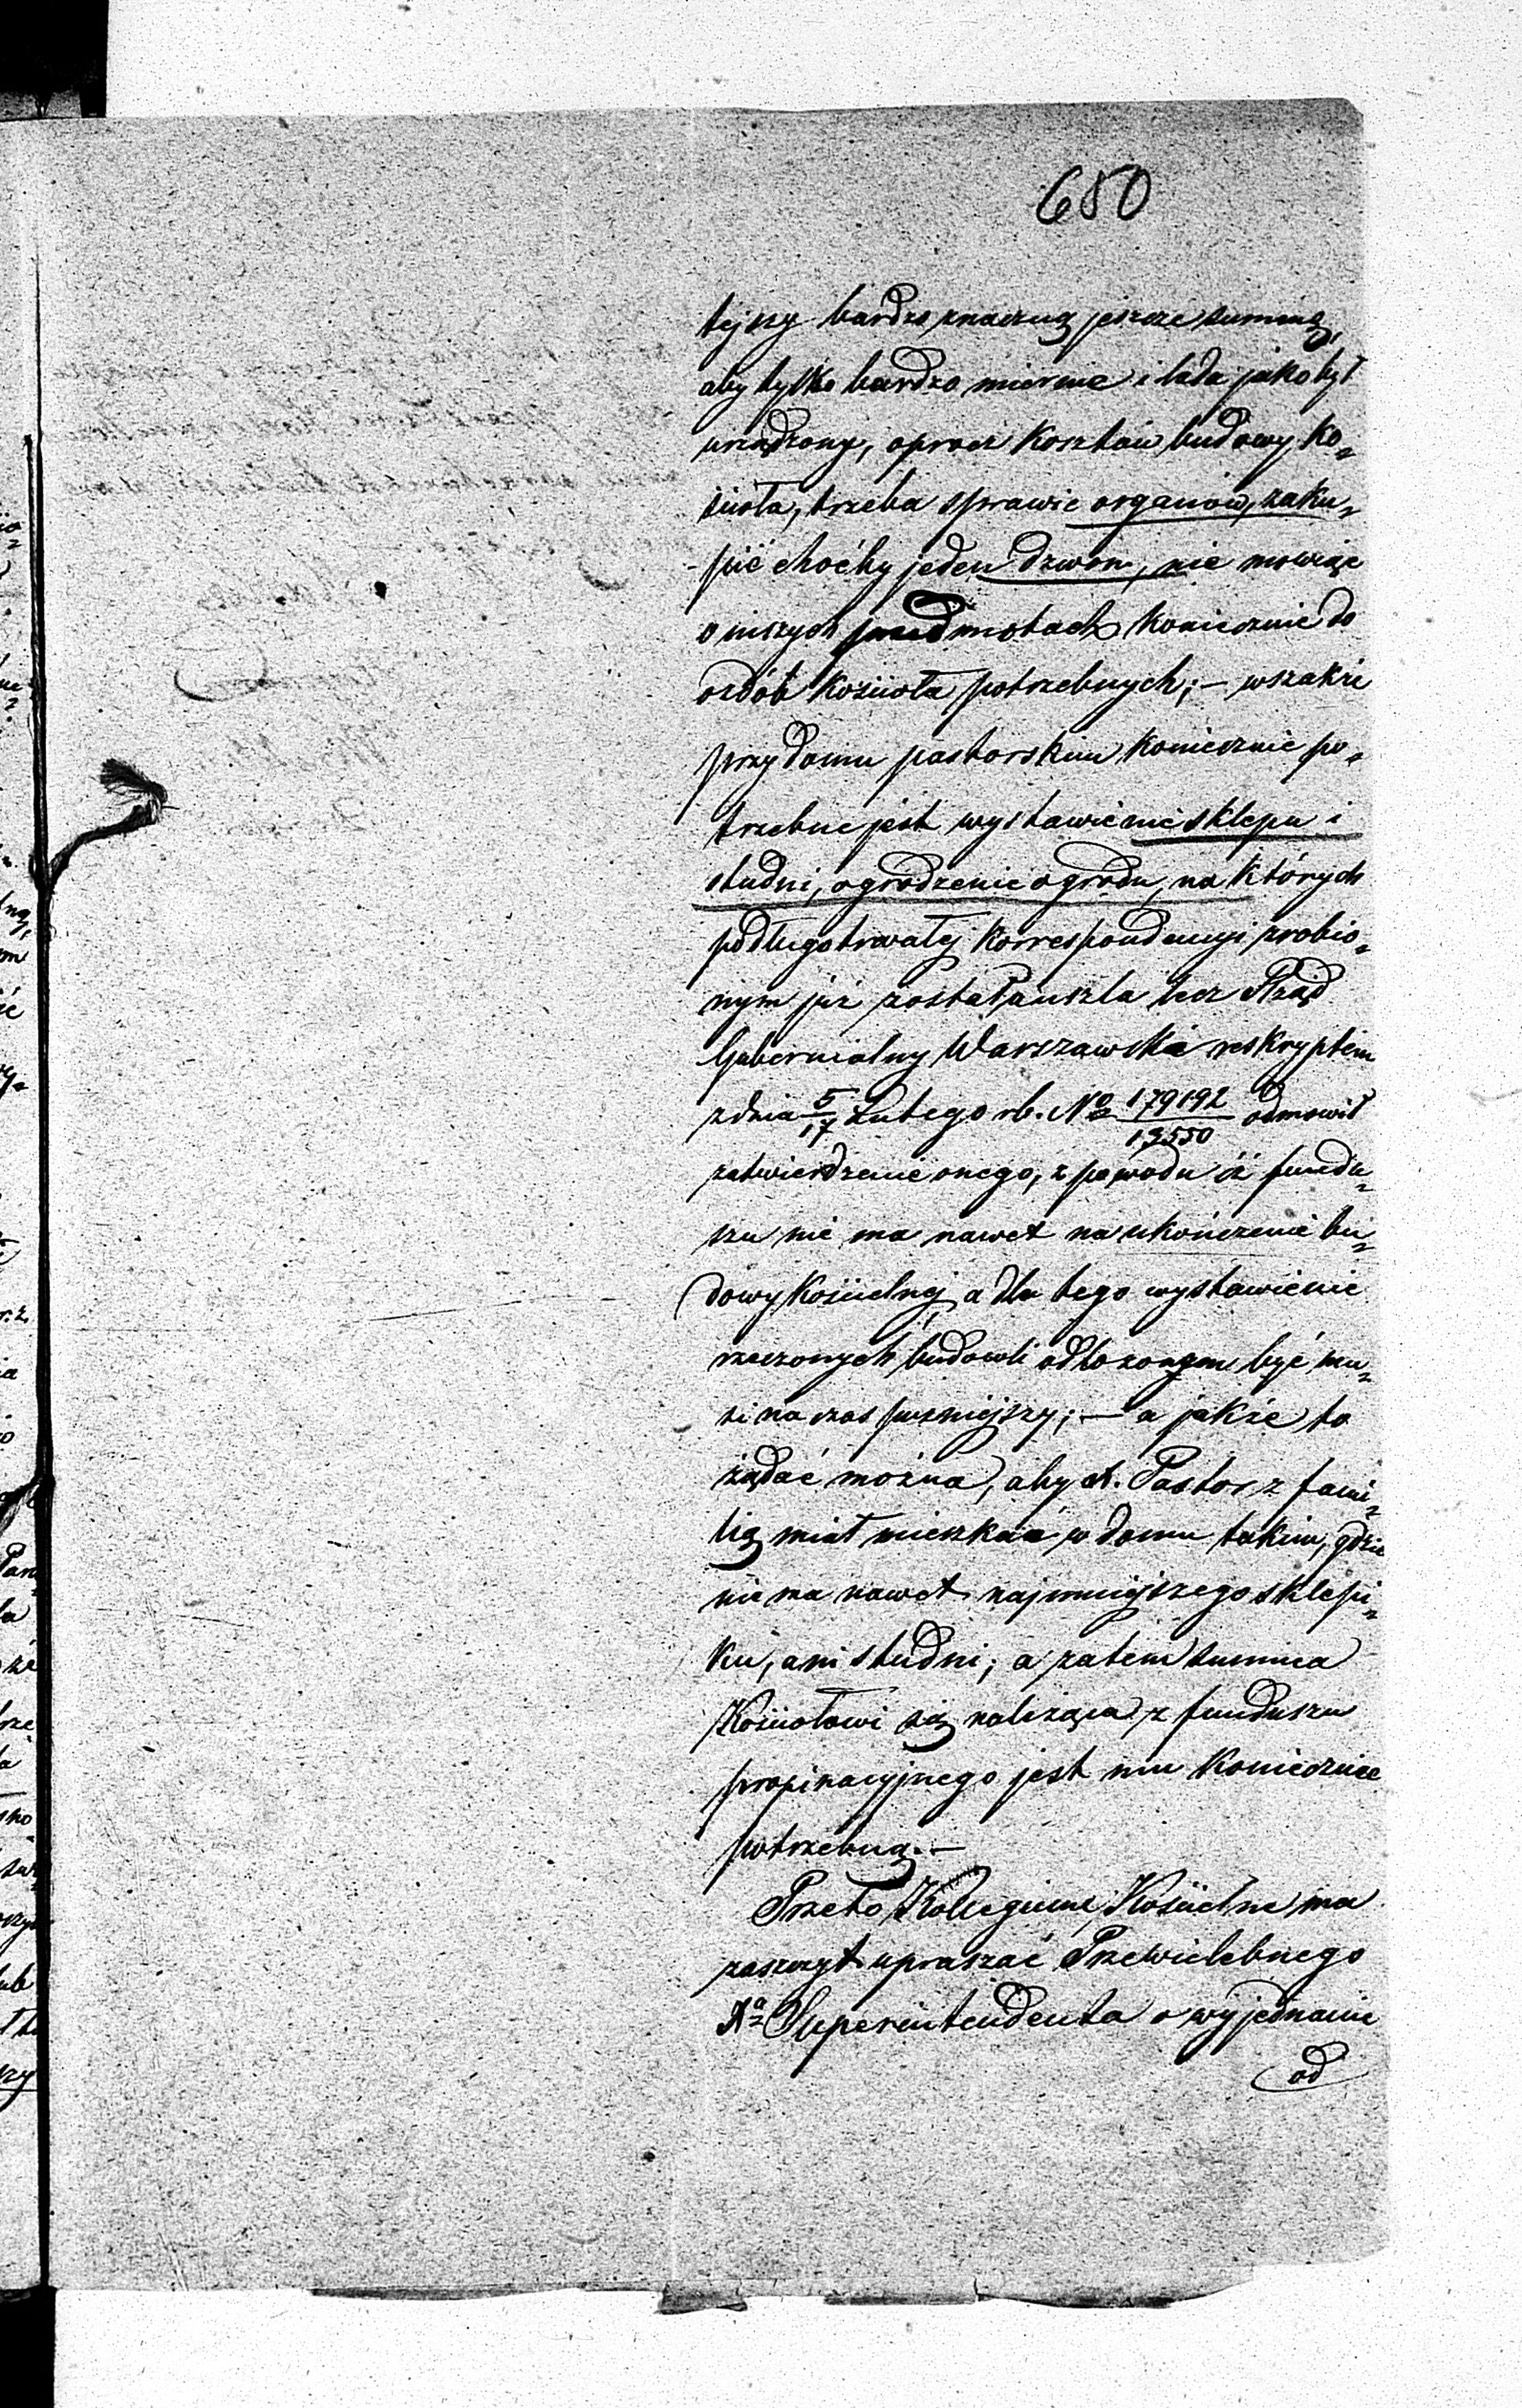 650
tejszy bardzo znaczną jeszcze summę,
aby tylko bardzo miernie i lada jako był
urządzony, oprocz Kosztów budowy Ko„
ścioła, trzeba sprawic organów, zaku„
pić choćby jeden dzwon, nie mowiąc
o inszych przedmiotach Koniecznie do
ozdób Kościoła potrzebnych; – wszakże
przy domu pastorskim Koniecznie po„
trzebne jest wystawienie sklepu i
studni, ogrodzenie ogrodu, na Których
po długotrwałej Korrespondencyi zrobio„
nym już został anszla lecz Rząd
Gubernialny Warszawski reskryptem
z dnia 5/17 Lutego rb. No 179192/13550 odmowił
zatwierdzenie onego, z powodu iż fundu„
szu nie ma nawet na ukończenie bu„
dowy Kościelnej a dla tego wystawienie
rzeczonych budowli odłożonym być mu„
si na czas puzniejszy; – a jakże to
żądać można, aby X. Pastor z fami„
lią miał mieszkać w domu takim, gdzie
nie ma nawet najmniejszego sklepi„
ku, ani studni; a zatem summa
Kościołowi się należąca z funduszu
propinacyjnego jest mu Koniecznie
potrzebną. –
Przeto Kollegium Kościelne ma
zaszczyt upraszać Przewielebnego
Xa Superintendenta o wyjednanie
od